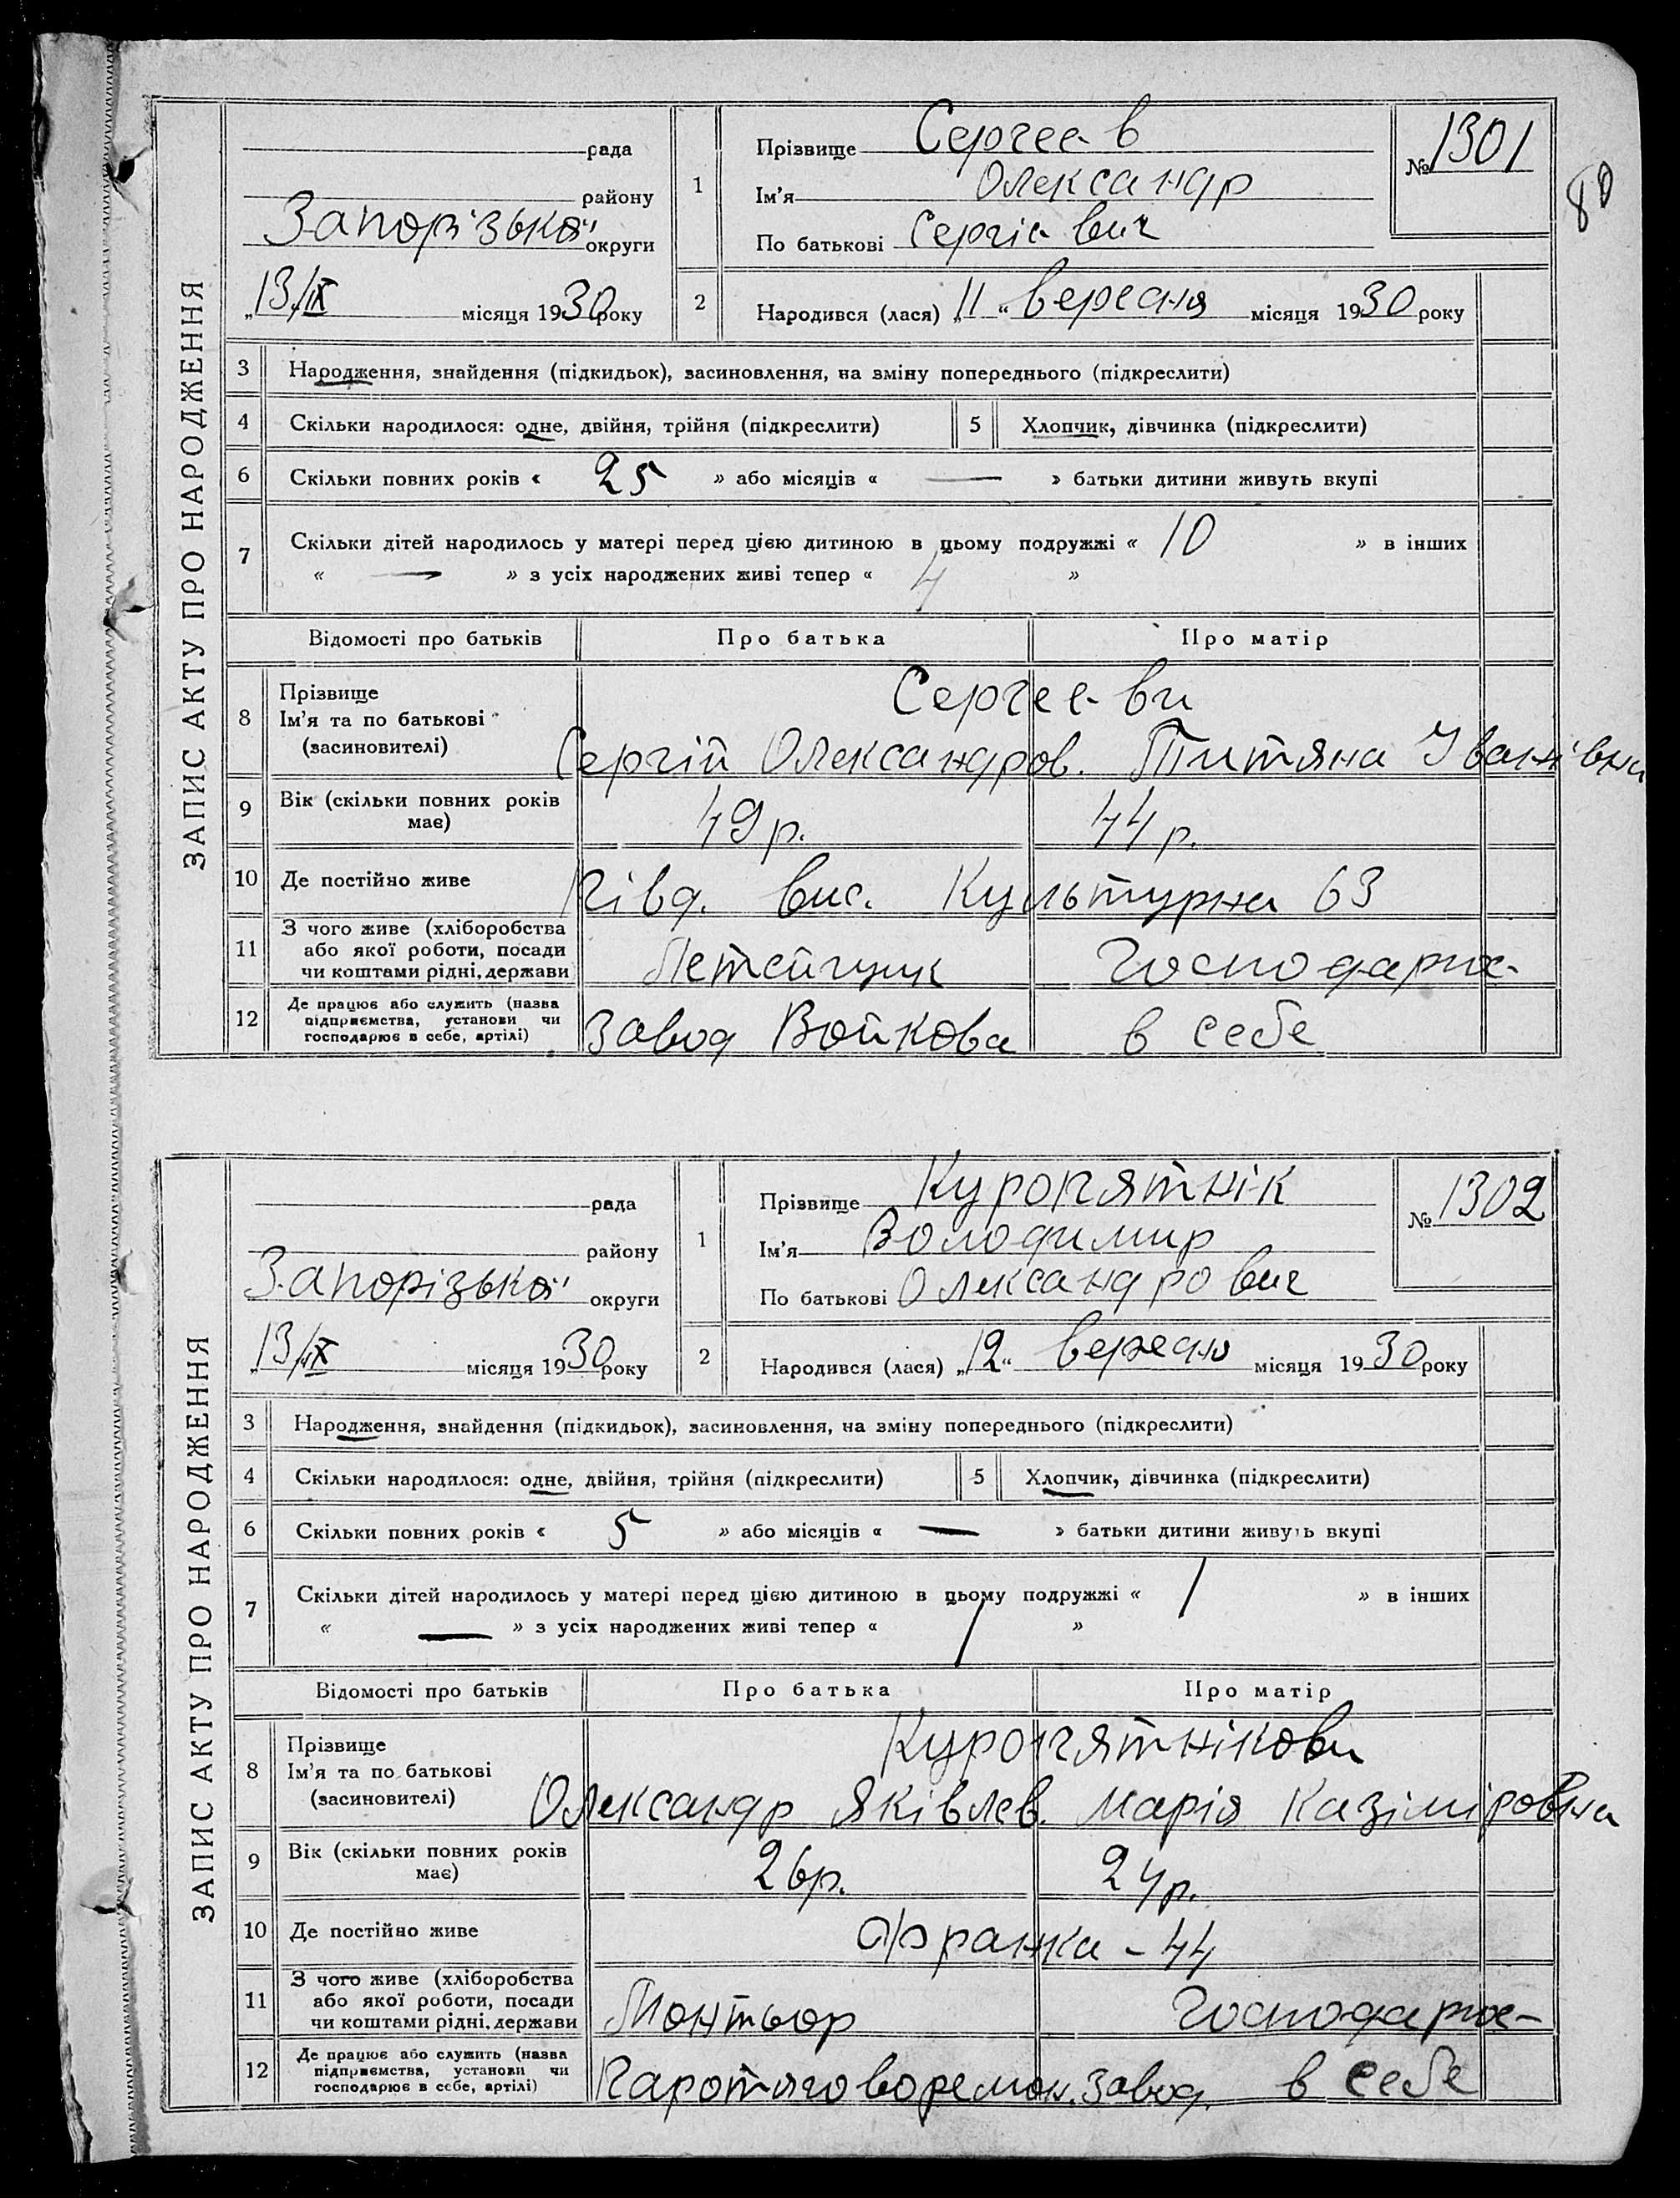 80
ЗАПИС АКТУ ПРО НАРОДЖЕННЯ
рада
району
Запорізької округи
„13/IX місяця 1930 року
1
Прізвище Сергеев
Ім'я Олександр
По батькові Сергієвич
№ 1301
2 Народився (лася) „11“ вересня місяця 1930 року
3 Народження, знайдення (підкидьок), засиновлення, на зміну попереднього (підкреслити)
4 Скільки народилося: одне, двійня, трійня (підкреслити) 5 Хлопчик, дівчинка (підкреслити)
6 Скільки повних років « 25 » або місяців « — » батьки дитини живуть вкупі
7 Скільки дітей народилось у матері перед цією дитиною в цьому подружжі « 10 » в інших
« — » з усіх народжених живі тепер « 4 »
Відомості про батьків Про батька Про матір
8 Прізвище
Ім'я та по батькові
(засиновителі)
Сергееви
Сергій Олександров. Титяна Іванівна
9 Вік (скільки повних років
має)
49 р. 44 р.
10 Де постійно живе Півд. вис. Культурна 63
11 З чого живе (хліборобства
або якої роботи, посади
чи коштами рідні, держави
Летейщик Господарює-
12 Де працює або служить (назва
підприємства, установи чи
господарює в себе, артілі)
Завод Войкова в себе
ЗАПИС АКТУ ПРО НАРОДЖЕННЯ
рада
району
Запорізької округи
„13/IX місяця 1930 року
1
Прізвище Куропятнік
Ім'я Володимир
По батькові Олександрович
№ 1302
2 Народився (лася) „12“ вересня місяця 1930 року
3 Народження, знайдення (підкидьок), засиновлення, на зміну попереднього (підкреслити)
4 Скільки народилося: одне, двійня, трійня (підкреслити) 5 Хлопчик, дівчинка (підкреслити)
6 Скільки повних років « 5 » або місяців « — » батьки дитини живуть вкупі
7 Скільки дітей народилось у матері перед цією дитиною в цьому подружжі « 1 » в інших
« — » з усіх народжених живі тепер « 1 »
Відомості про батьків Про батька Про матір
8 Прізвище
Ім'я та по батькові
(засиновителі)
Куропятнікови
Олександр Яківлев. Марія Казіміровна
9 Вік (скільки повних років
має)
26р. 24р.
10 Де постійно живе Франка - 44
11 З чого живе (хліборобства
або якої роботи, посади
чи коштами рідні, держави
Монтьор Господарює-
12 Де працює або служить (назва
підприємства, установи чи
господарює в себе, артілі)
Паротяговоремон. завод. в себе